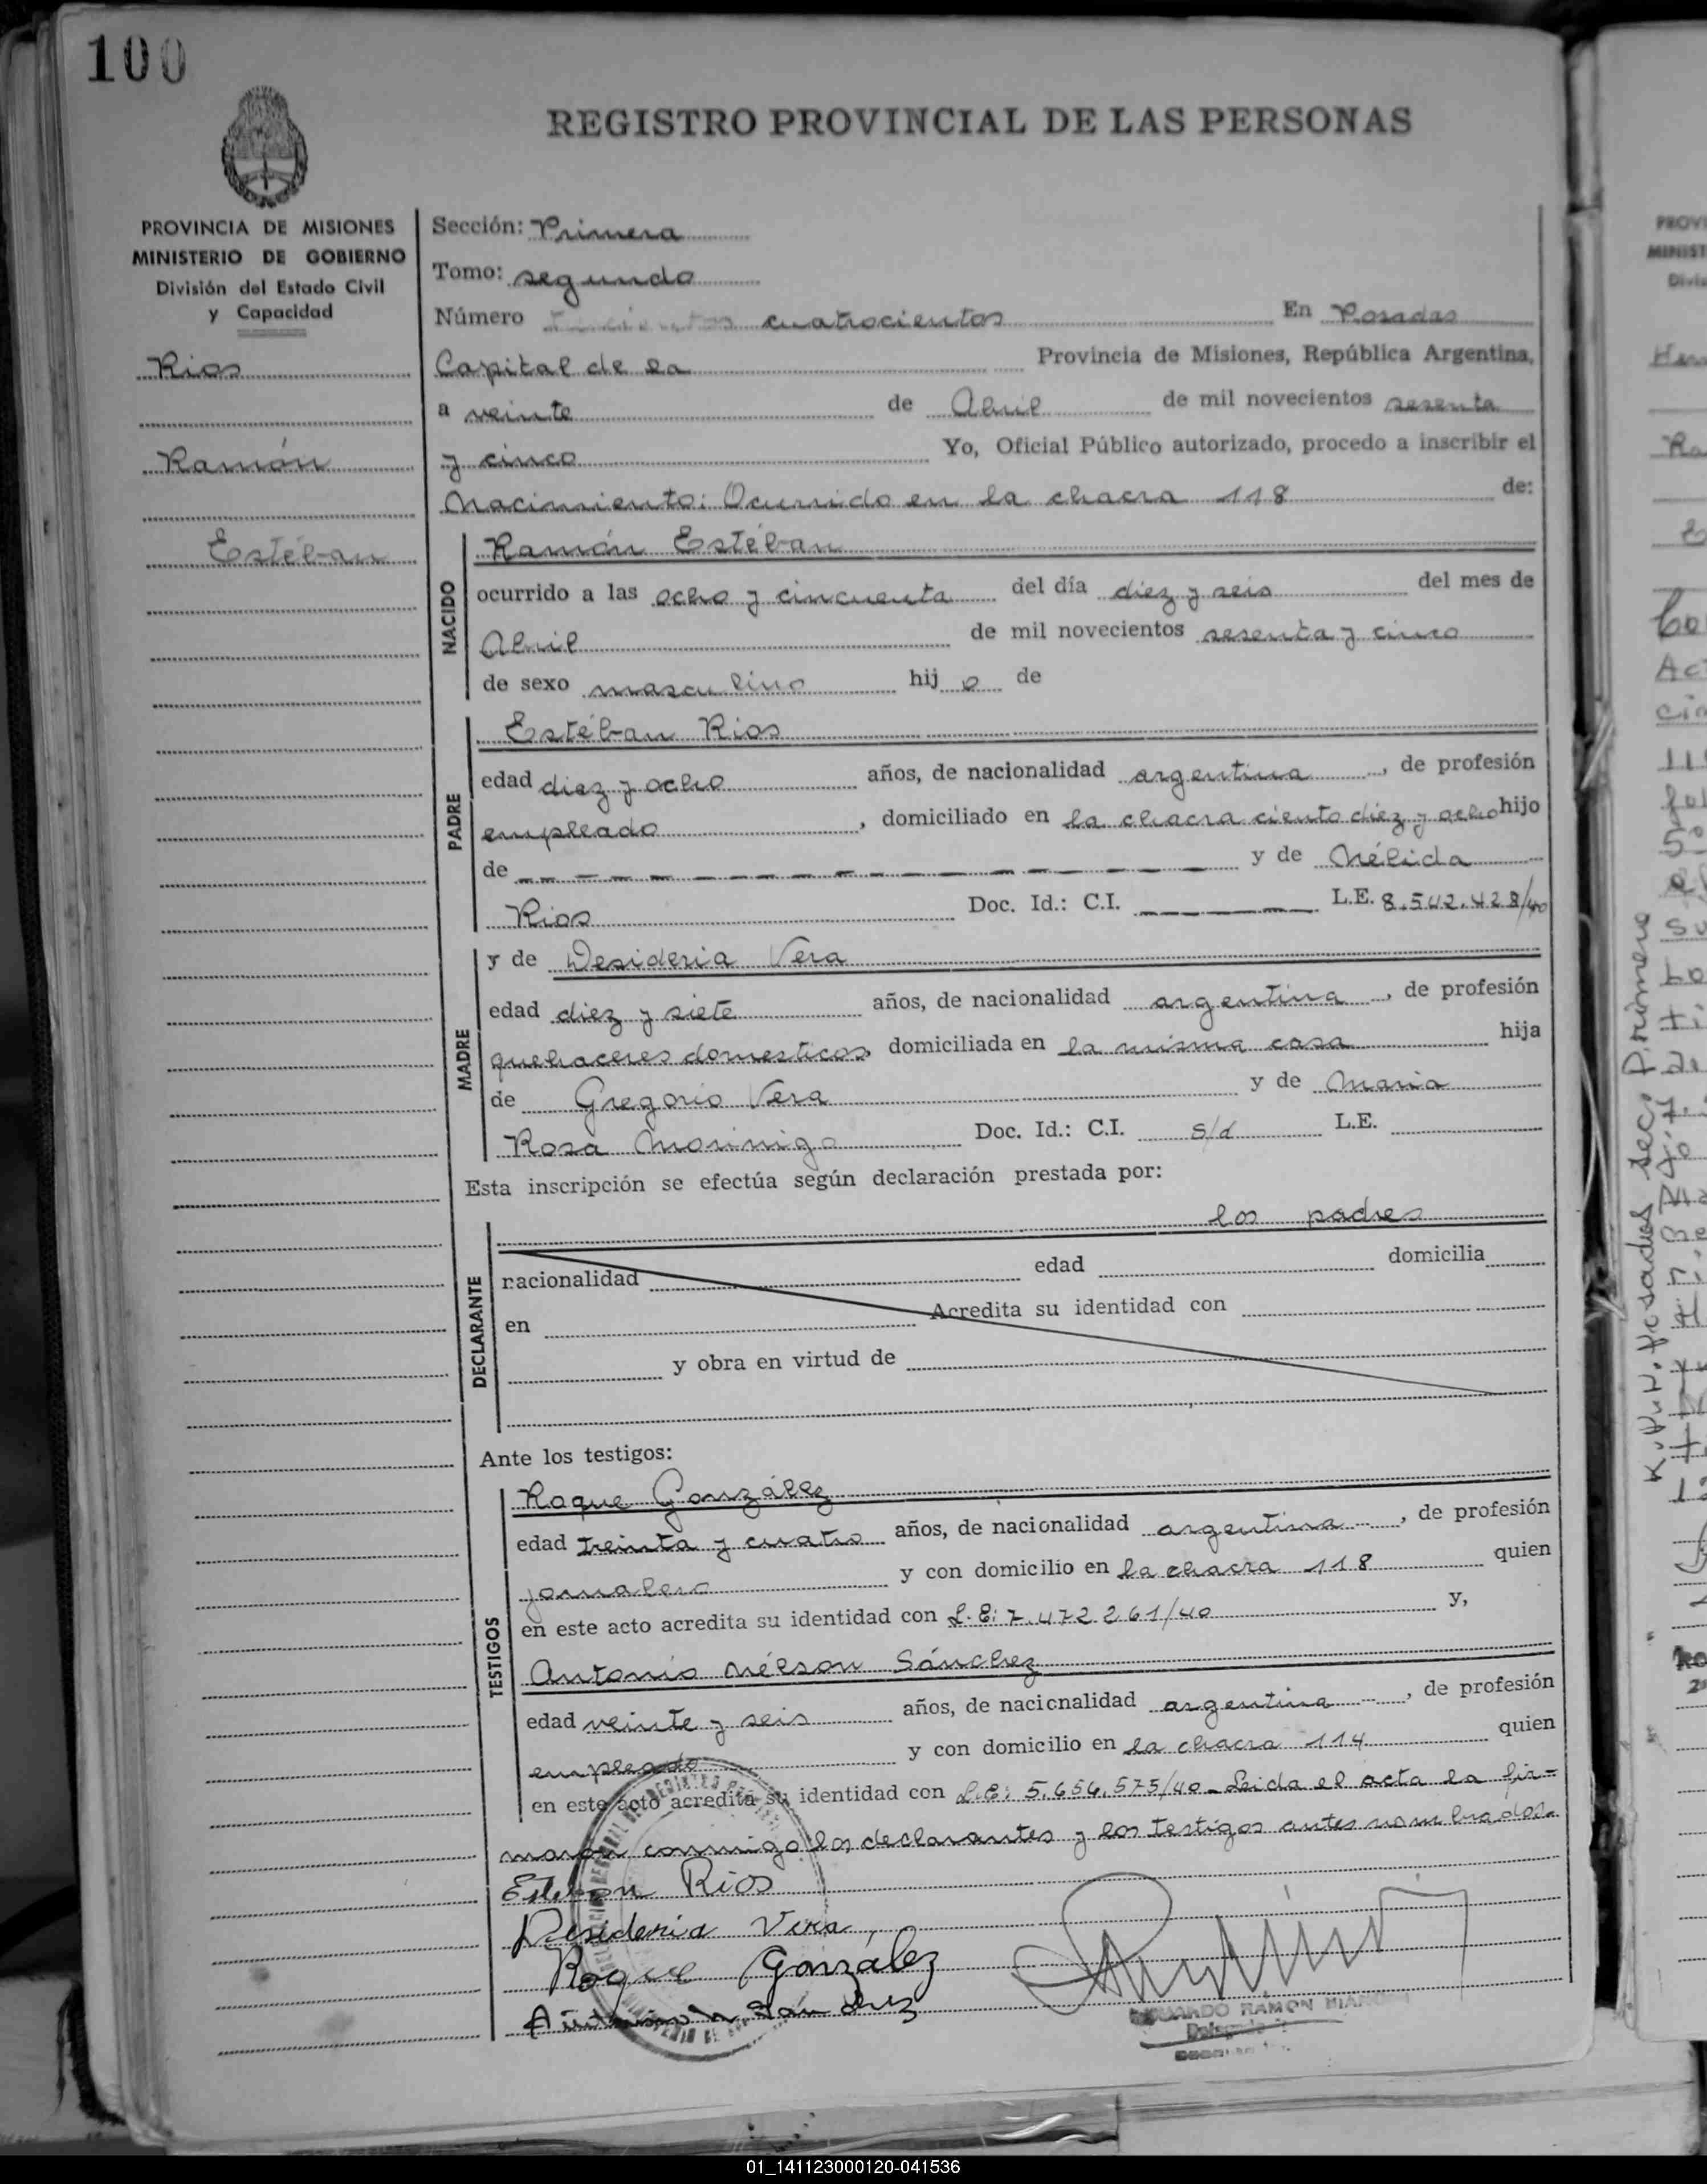 100
REGISTRO PROVINCIAL DE LAS PERSONAS
PROVINCIA DE MISIONES
MINISTERIO DE GOBIERNO
División del Estado Civil
y Capacidad
Rios
Ramón
Estéban
Sección: Primera
Tomo: segundo
Número cuatrocientos En Posadas
Capital de la Provincia de Misiones, República Argentina,
a veinte de Abril de mil novecientos sesenta
y cinco Yo, Oficial Público autorizado, procedo a inscribir el
Nacimiento: Ocurrido en la chacra 118 de:
NACIDO
Ramón Estéban
ocurrido a las ocho y cincuenta del día diez y seis del mes de
Abril de mil novecientos sesenta y cinco
de sexo masculino hij o de
PADRE
Estéban Rios
edad diez y ocho años, de nacionalidad argentina, de profesión
empleado, domiciliado en la chacra ciento diez y ocho hijo
de y de Nélida
Rios Doc. Id.: C.I. L.E. 8.542.428/40
MADRE
y de Desideria Vera
edad diez y siete años, de nacionalidad argentina, de profesión
quehaceres domesticos, domiciliada en la misma casa hija
de Gregorio Vera y de Maria
Rosa Morinigo Doc. Id.: C.I. s/d L.E.
Esta inscripción se efectúa según declaración prestada por:
DECLARANTE
los padres
nacionalidad edad domicilia
en Acredita su identidad con
y obra en virtud de
Ante los testigos:
TESTIGOS
Roque González
edad treinta y cuatro años, de nacionalidad argentina, de profesión
jornalero y con domicilio en la chacra 118 quien
en este acto acredita su identidad con L.E: 7.472.261/40 y,
Antonio Nélson Sánchez
edad veinte y seis años, de nacionalidad argentina, de profesión
empleado y con domicilio en la chacra 114 quien
en este acto acredita su identidad con L.E: 5.656.575/40 - Leida el acta la fir=
maron conmigo los declarantes y los testigos antes nombrados.
Esteban Rios
Desideria Vera
Roque González
Antonio N Sánchez
RAMON
01_141123000120-041536